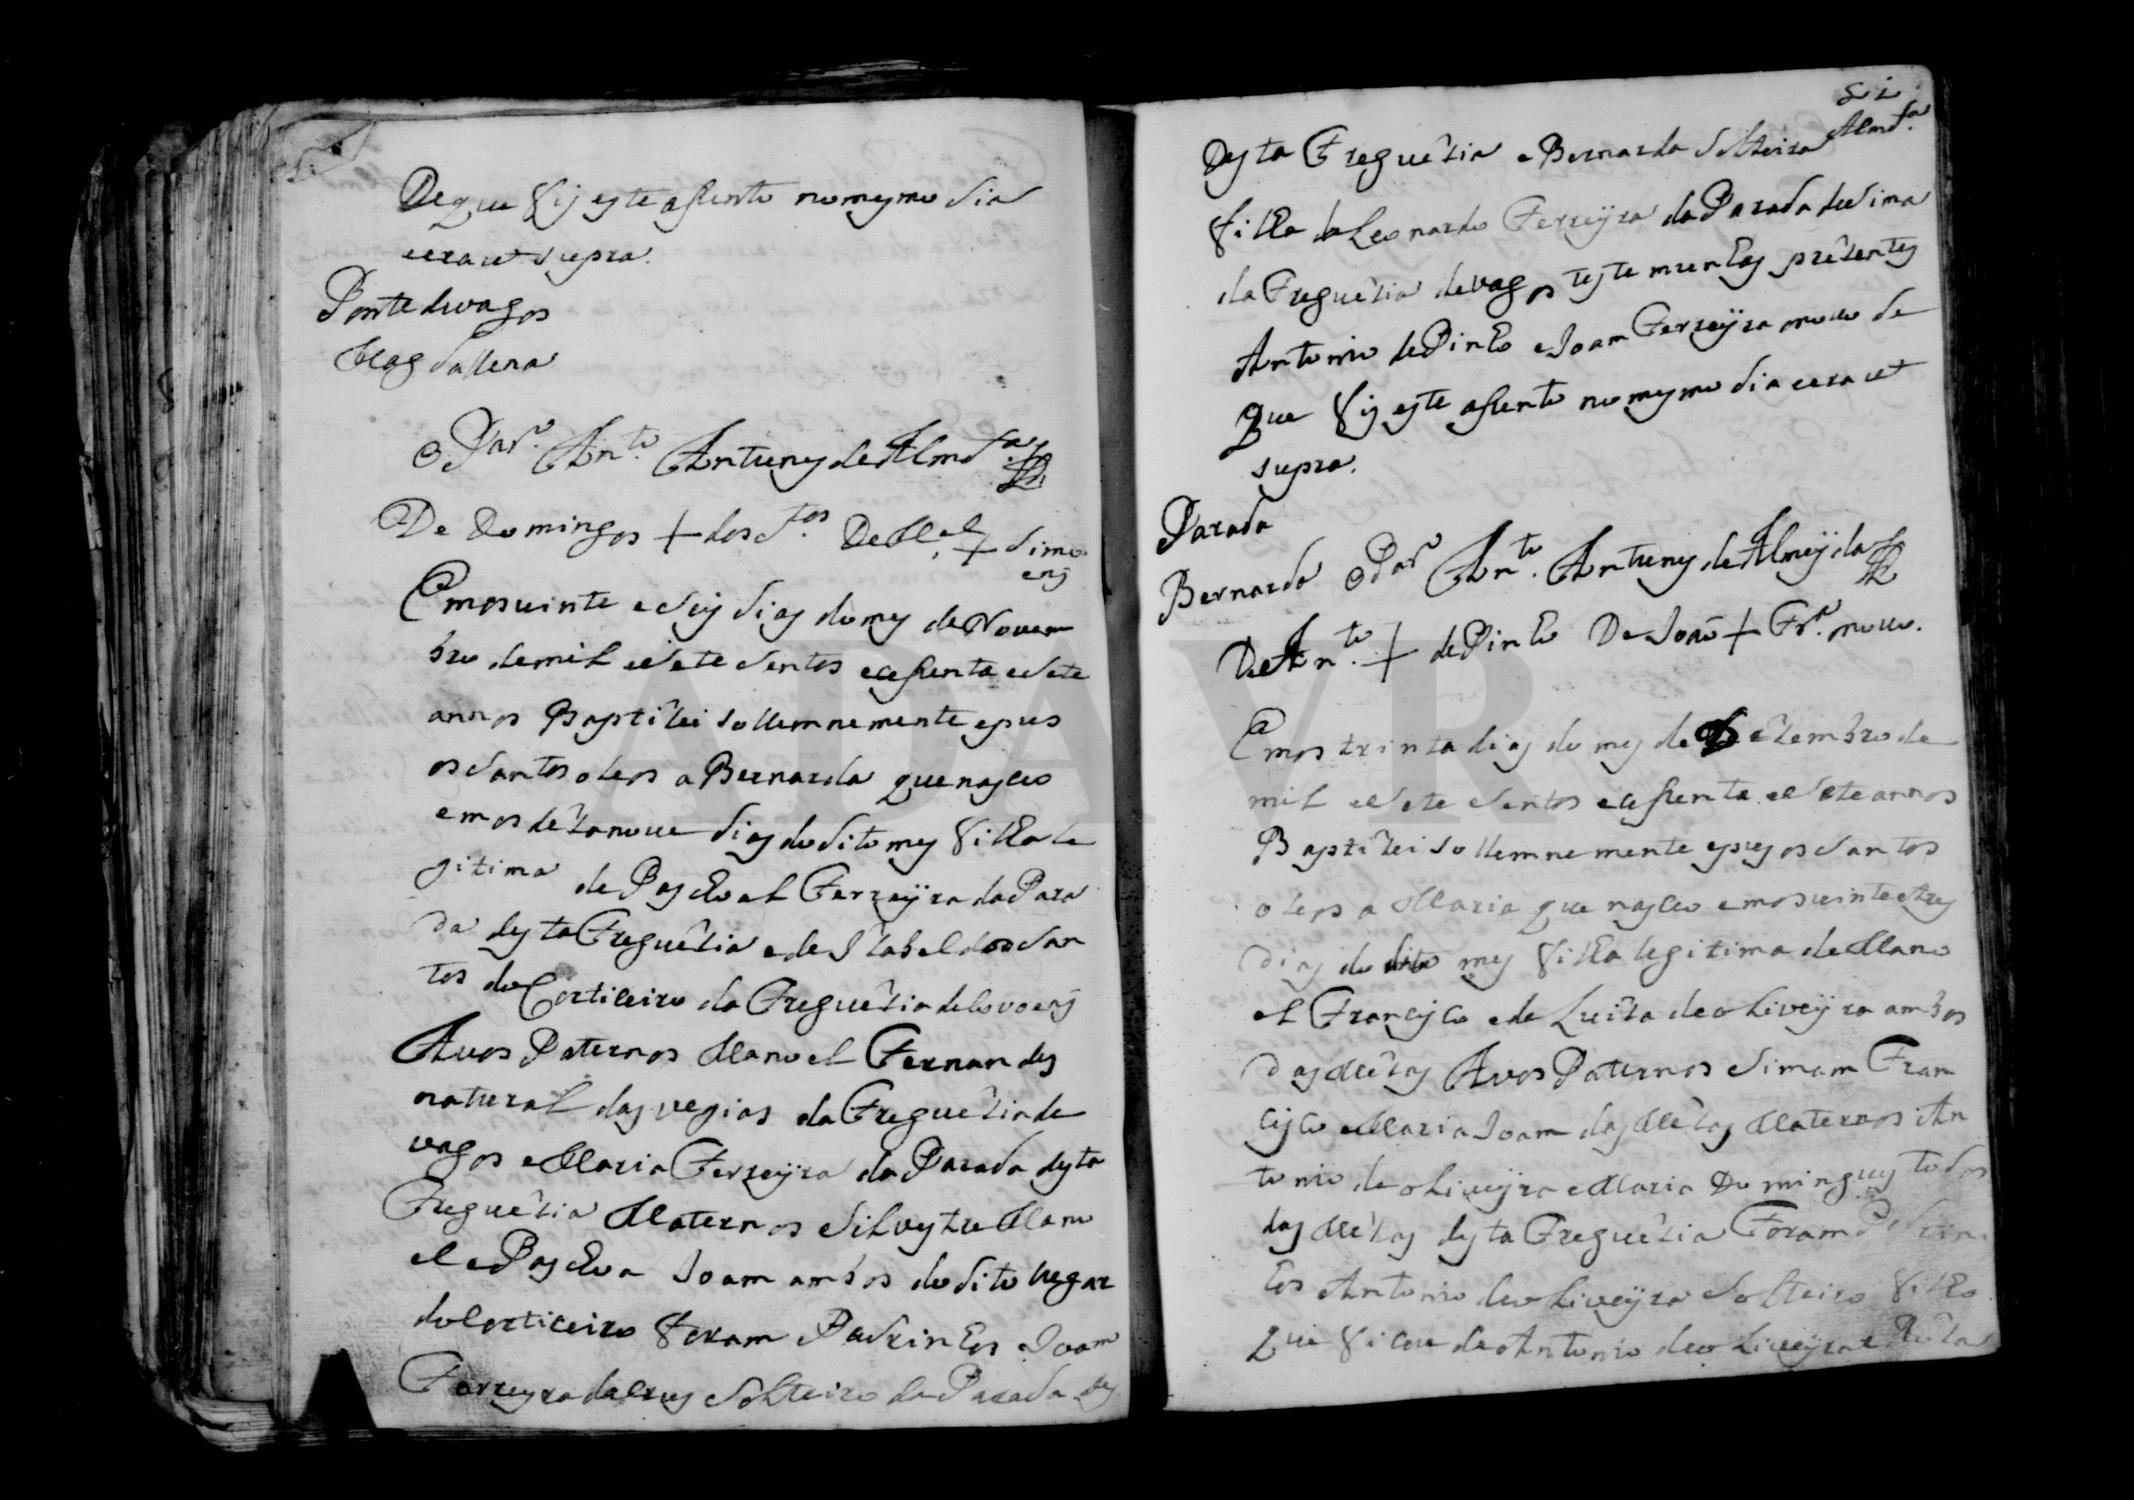 De que fis este assento no mesmo dia
e era ut supra.
Ponte de vagos
Magdallena
O Par.º Ant.º Antunes de Almd.ª
De Domingos + dos S.tos De M.el + Simo
ens
Em os vinte e seis dias do mes de Novem
bro de mil e sete sentos e cessenta e sete
annos Baptizei sollemnemente e pus
os santos oleos a Bernarda que nasceo
em os dezanove dias do dito mes filha le
gitima de Paschoal Ferreÿra da Para
da desta Freguezia e de Izabel dos San
tos do Corticeiro da Freguezia de Covoens
Avos Paternos Manoel Fernandes
natural das vegias da Freguezia de
vagos e Maria Ferreÿra da Parada desta
Freguezia Maternos Silvestre Mano
el e Paschoa Joam ambos do dito lugar
do Corticeiro foram Padrinhos Joam
Ferreyra da Crus Solteiro da Parada des
Almd.ª
Desta Freguezia e Bernarda Solteira
filha de Leonardo Ferreÿra da Parada de Sima
da Freguezia de vagos testemunhas prezentes
Antonio de Pinho e Joam Ferreÿra novo de
que fis este assento no mesmo dia e era ut
supra.
Parada
Bernarda O Par.º Ant.º Antunes de Almeÿda
De Ant.º + de Pinho De Joaõ + Fr.ª novo.
Em os trinta dias do mes de Dezembro de
mil e sete sentos e cessenta e sete annos
Baptizei sollemnemente e pus os santos
oleos a Maria que nasceo em os vinte e tres
dias do dito mes filha legitima de Mano
el Francisco e de Luiza de oliveÿra ambos
das Mezas Avos Paternos Simam Fran
cisco e Maria Joam das Mezas Maternos An
tonio de oliveÿra e Maria Domingues todos
das Mezas desta Freguezia Foram Padrin
hos Antonio de oliveÿra Solteiro filho
que ficou de Antonio de oliveÿra e
ADAVR